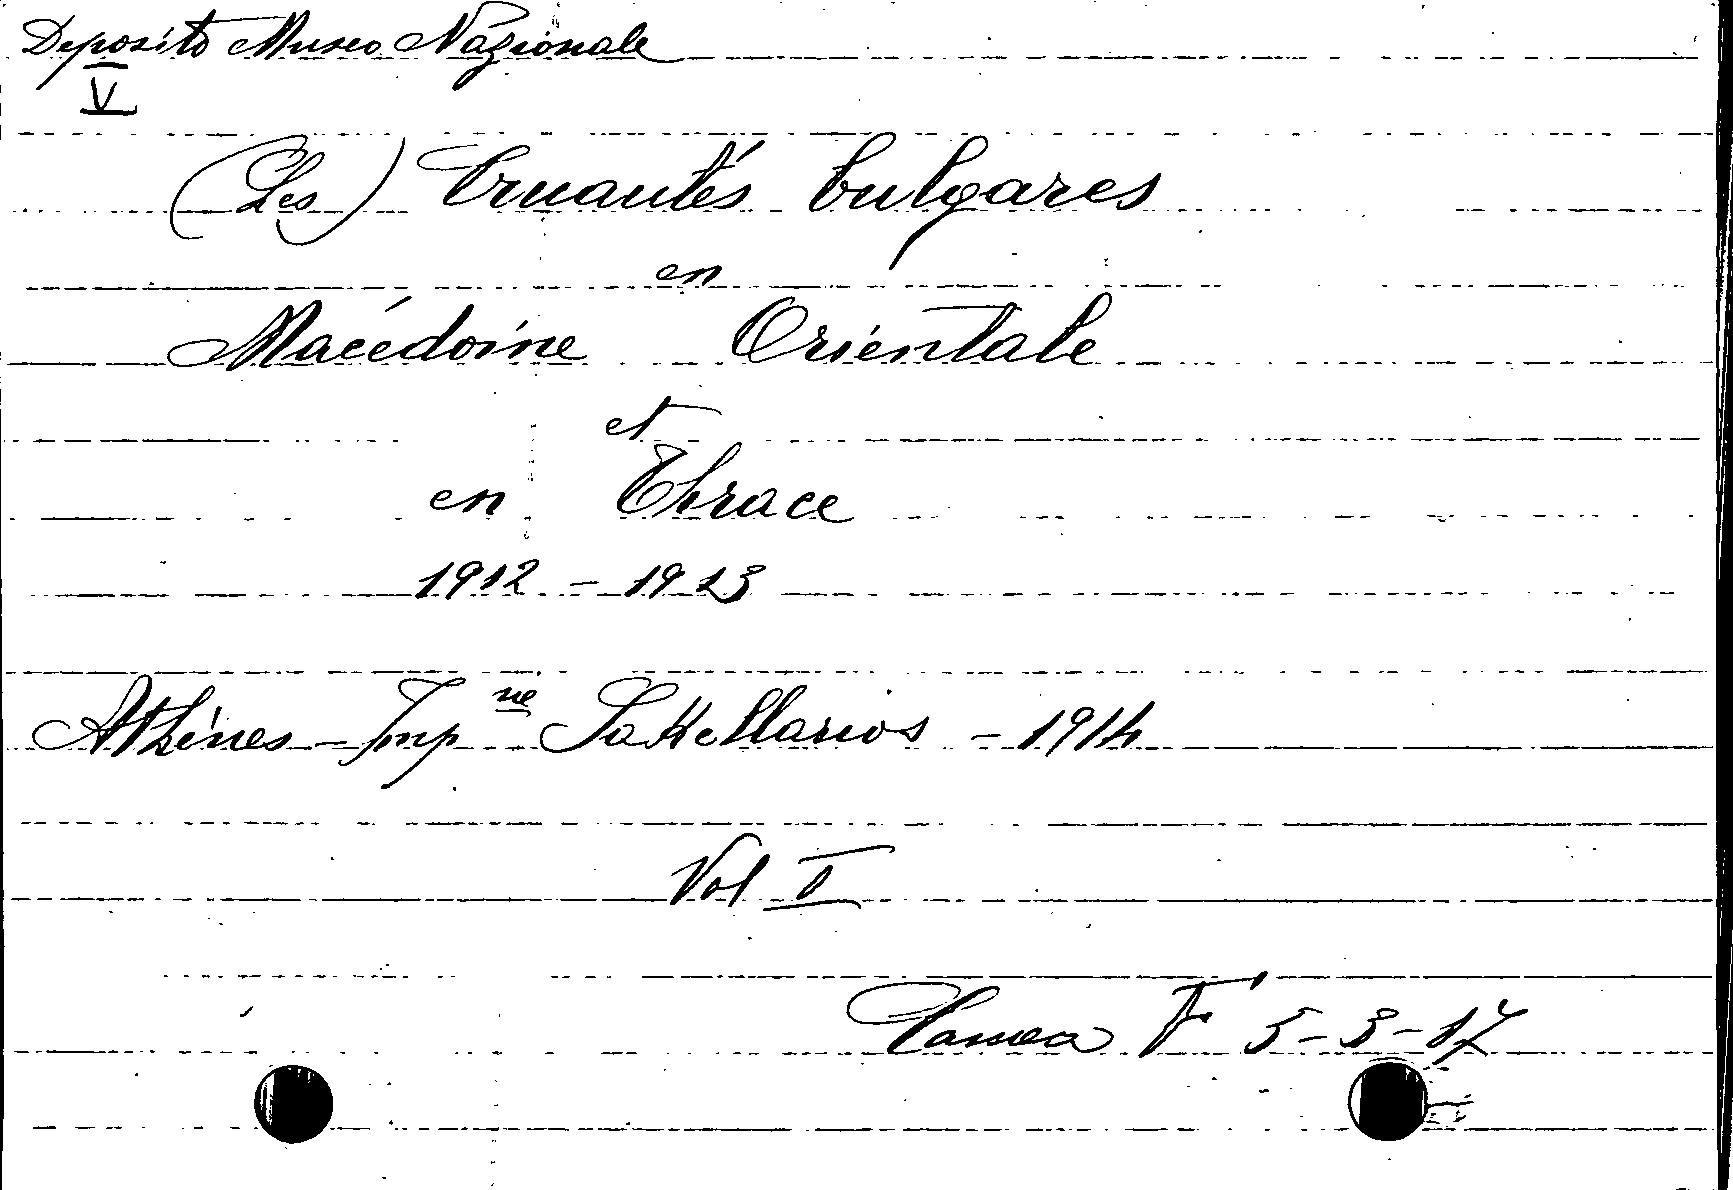 Deposito Museo Nazionale
V
(Les) Cruautés bulgares
en
Macédoine Orientale
et
en Thrace
1912 - 1913
Athènes - Impne Sakellarios - 1914
Vol I
F 5-3-17